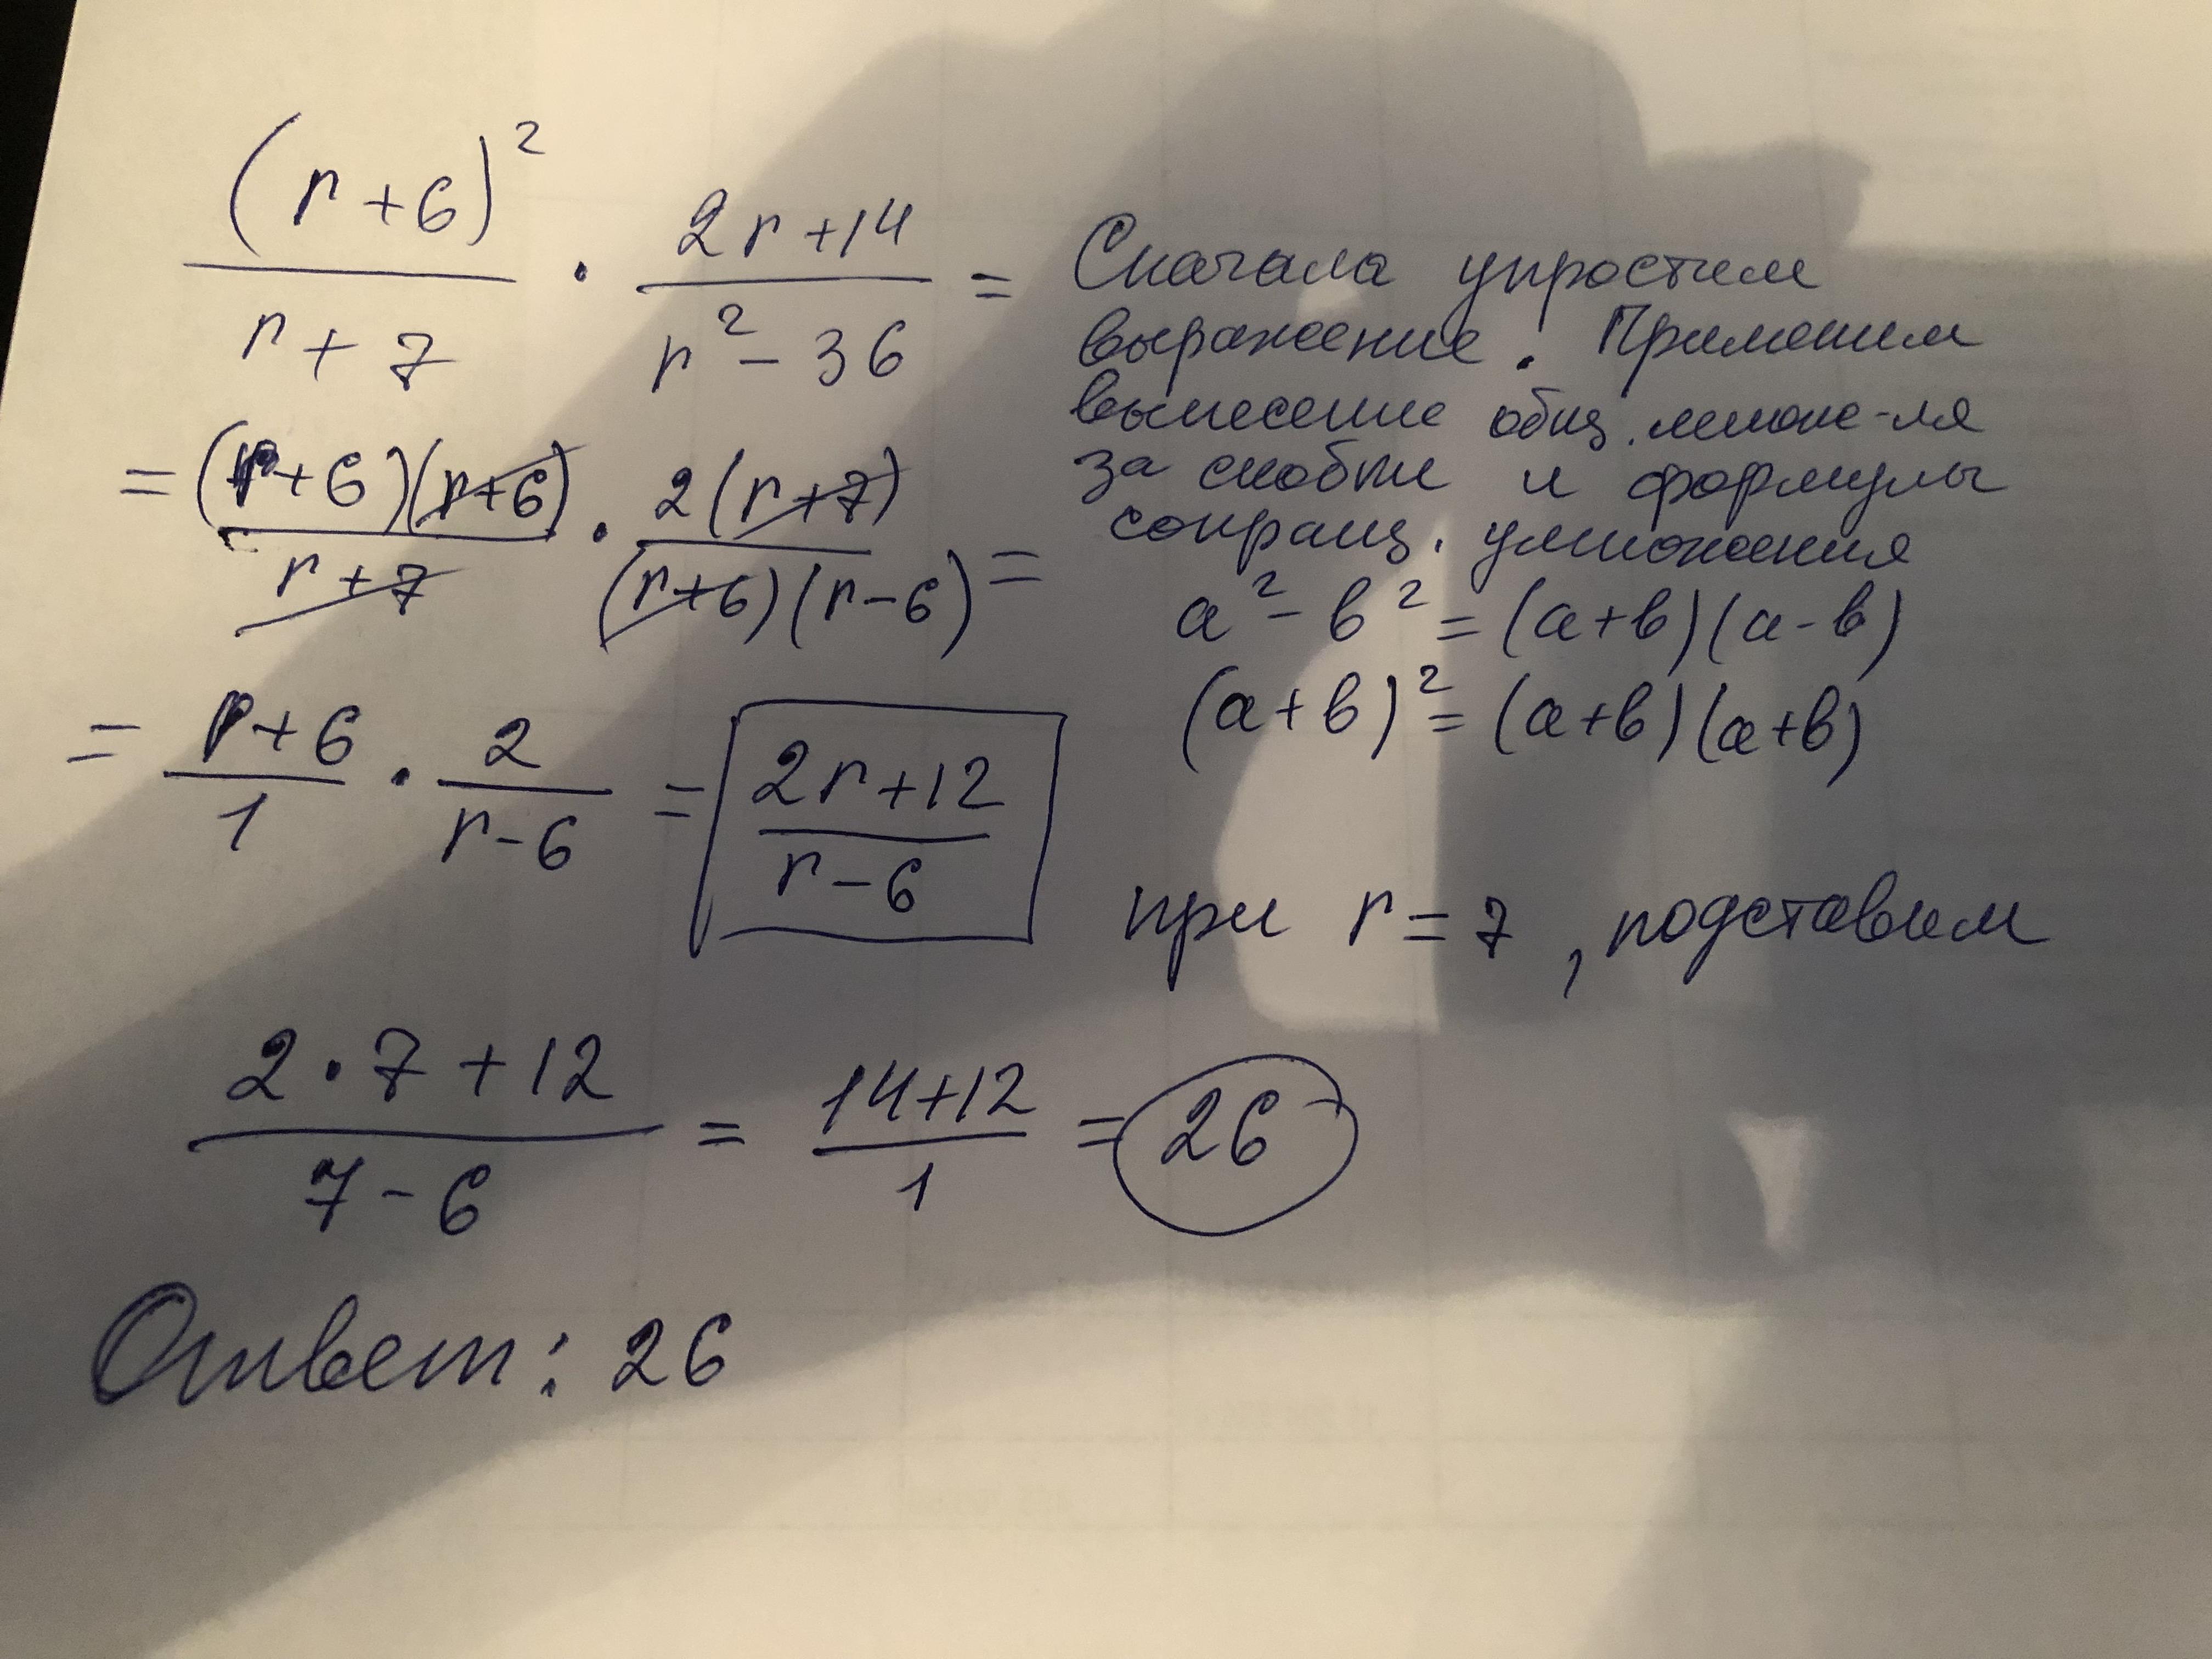 (r+6)² / (r+7) · (2r+14) / (r²-36) =
Сначала упростим
выражение. Применим
вынесение общ. множ-ля
за скобки и формулы
сокращ. умножения
a²-b²=(a+b)(a-b)
(a+b)²=(a+b)(a+b)
= (r+6)(r+6) / (r+7) · 2(r+7) / (r+6)(r-6) =
= (r+6) / 1 · 2 / (r-6) = (2r+12) / (r-6)
при r=7, подставим
(2·7+12) / (7-6) = (14+12) / 1 = 26
Ответ: 26